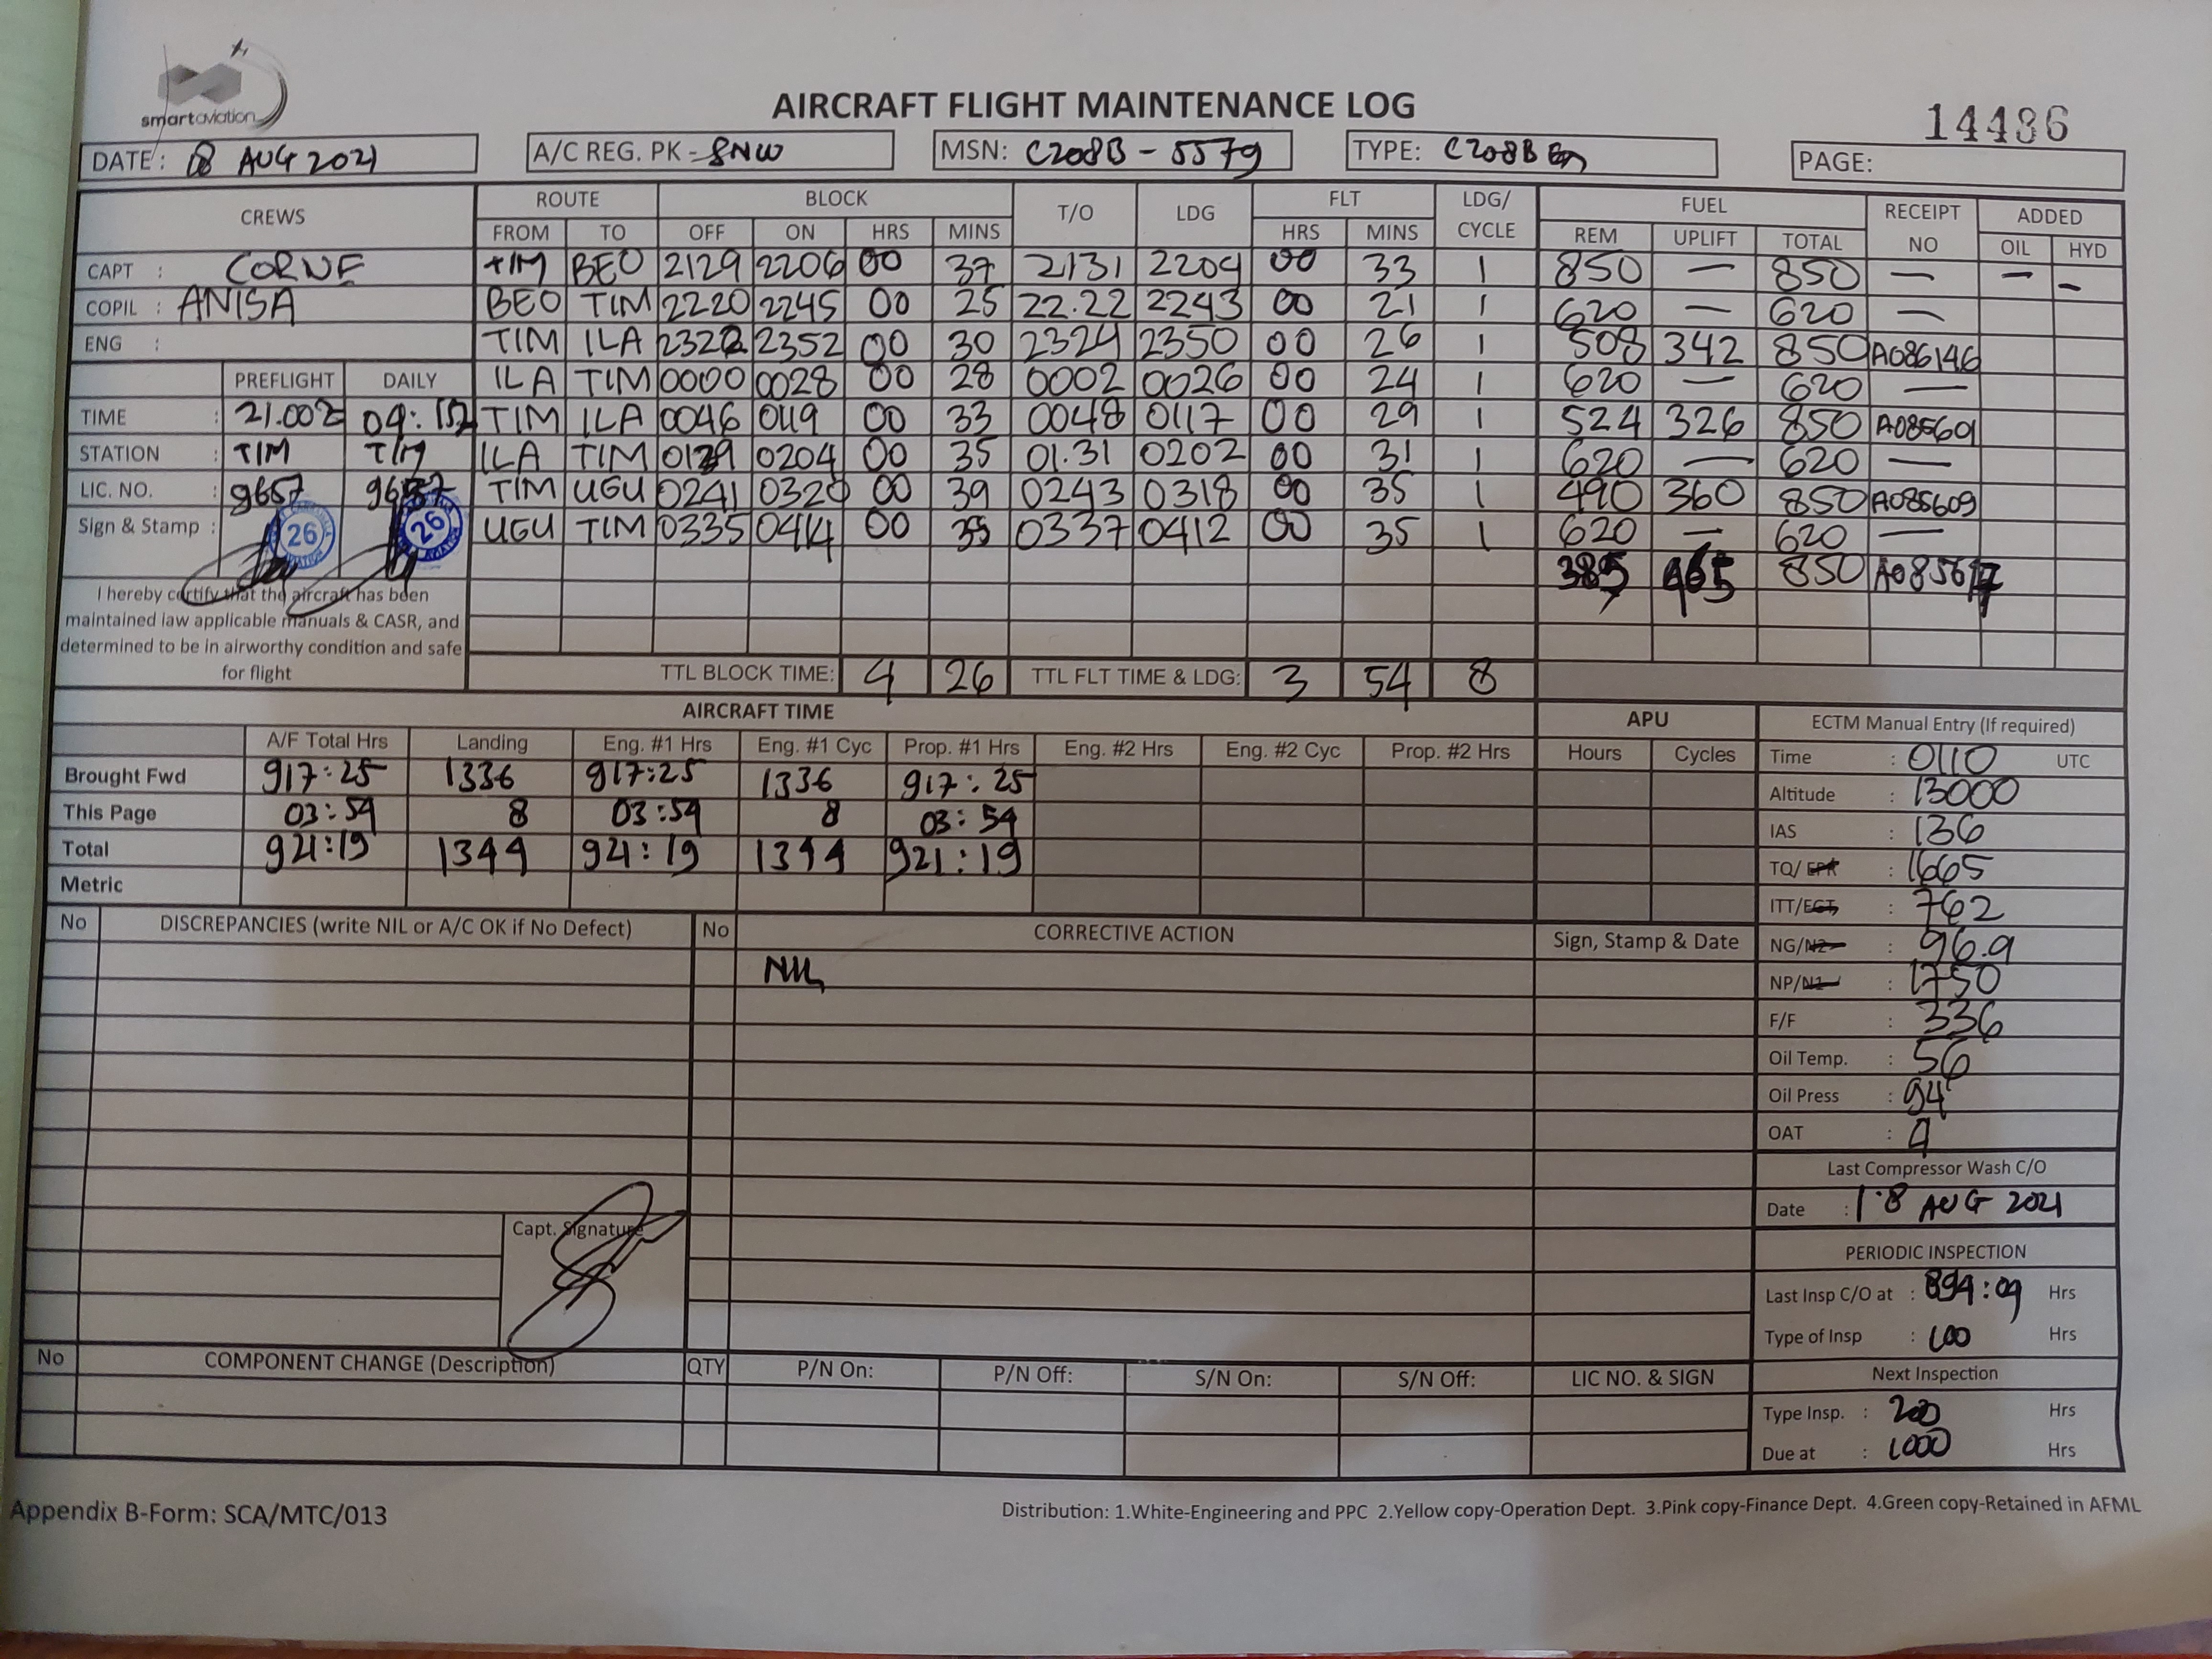 smartaviation
AIRCRAFT FLIGHT MAINTENANCE LOG
14436
DATE: 18 AUG 2021 A/C REG. PK - SNW MSN: C208B - 5579 TYPE: C208B EX PAGE:
CREWS ROUTE BLOCK T/O LDG FLT LDG/ CYCLE FUEL RECEIPT NO ADDED
FROM TO OFF ON HRS MINS HRS MINS REM UPLIFT TOTAL OIL HYD
CAPT : CORNE TIM BEO 2129 2206 00 37 2131 2204 00 33 1 850 — 850 — — –
COPIL : ANISA BEO TIM 2220 2245 00 25 22.22 2243 00 21 1 620 — 620 —
ENG : TIM ILA 2322 2352 00 30 2324 2350 00 26 1 508 342 850 A086146
PREFLIGHT DAILY ILA TIM 0000 0028 00 28 0002 0026 00 24 1 620 — 620 —
TIME : 21.00Z 09: TIM ILA 0046 0119 00 33 0048 0117 00 29 1 524 326 850 A085601
STATION : TIM TIM ILA TIM 0129 0204 00 35 01.31 0202 00 31 1 620 — 620 —
LIC. NO. : 9657 9657 TIM UGU 0241 0320 00 39 0243 0318 00 35 1 490 360 850 A085609
Sign & Stamp : 26 26 UGU TIM 0335 0414 00 39 0337 0412 00 35 1 620 — 620 —
385 465 850 A085617
I hereby certify that the aircraft has been
maintained law applicable manuals & CASR, and
determined to be in airworthy condition and safe
for flight
TTL BLOCK TIME: 4 26 TTL FLT TIME & LDG: 3 54 8
AIRCRAFT TIME APU ECTM Manual Entry (If required)
A/F Total Hrs Landing Eng. #1 Hrs Eng. #1 Cyc Prop. #1 Hrs Eng. #2 Hrs Eng. #2 Cyc Prop. #2 Hrs Hours Cycles
Brought Fwd 917:25 1336 917:25 1336 917:25
This Page 03:54 8 03:54 8 03:54
Total 921:19 1344 921:19 1344 921:19
Metric
Time : 0110 UTC
Altitude : 13000
IAS : 136
TQ/ EPR : 1665
ITT/EGT : 762
NG/N2 : 96.9
NP/N1 : 1750
F/F : 336
Oil Temp. : 56
Oil Press : 94
OAT : 9
No DISCREPANCIES (write NIL or A/C OK if No Defect) No CORRECTIVE ACTION Sign, Stamp & Date
NIL
Last Compressor Wash C/O
Date : 18 AUG 2021
Capt. Signature
PERIODIC INSPECTION
Last Insp C/O at : 894:09 Hrs
Type of Insp : 100 Hrs
No COMPONENT CHANGE (Description) QTY P/N On: P/N Off: S/N On: S/N Off: LIC NO. & SIGN
Next Inspection
Type Insp. : 200 Hrs
Due at : 1000 Hrs
Appendix B-Form: SCA/MTC/013
Distribution: 1.White-Engineering and PPC 2.Yellow copy-Operation Dept. 3.Pink copy-Finance Dept. 4.Green copy-Retained in AFML